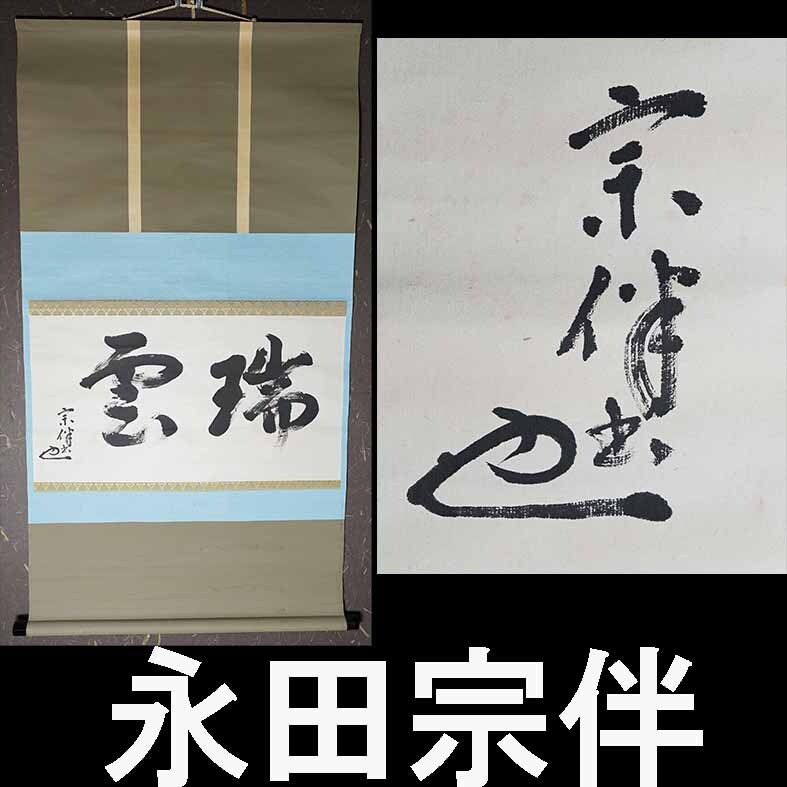 瑞雲
宗伴書
宗伴書
永田宗伴